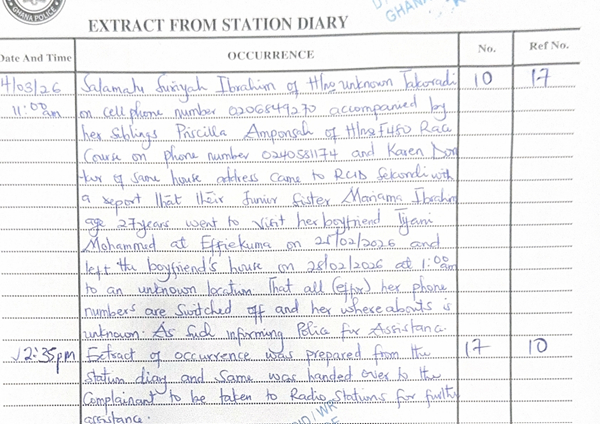 GHANA POLICE
GHANA
EXTRACT FROM STATION DIARY
Date And Time OCCURRENCE No. Ref No.
4/03/26 Salamatu Ibrahim of H/no unknown Takoradi 10 17
11:00am on cellphone number 0206849270 accompanied by
her siblings Priscilla Amponsah of H/no F480 Race
Course on phone number 0240551174 and Karen
of same house address came to Sekondi with
a report that their Junior Sister Mariama Ibrahim
age 27years went to visit her boyfriend
Mohammed at Effiekuma on 25/02/2026 and
left the boyfriend's house on 28/02/2026 at 1:00am
to an unknown location. That all effort her phone
numbers are switched off and her whereabouts is
unknown. As such informing Police for Assistance.
12:35pm Extract of occurrence was prepared from the 17 10
station diary and same was handed over to the
Complainant to be taken to Radio stations for further
assistance.